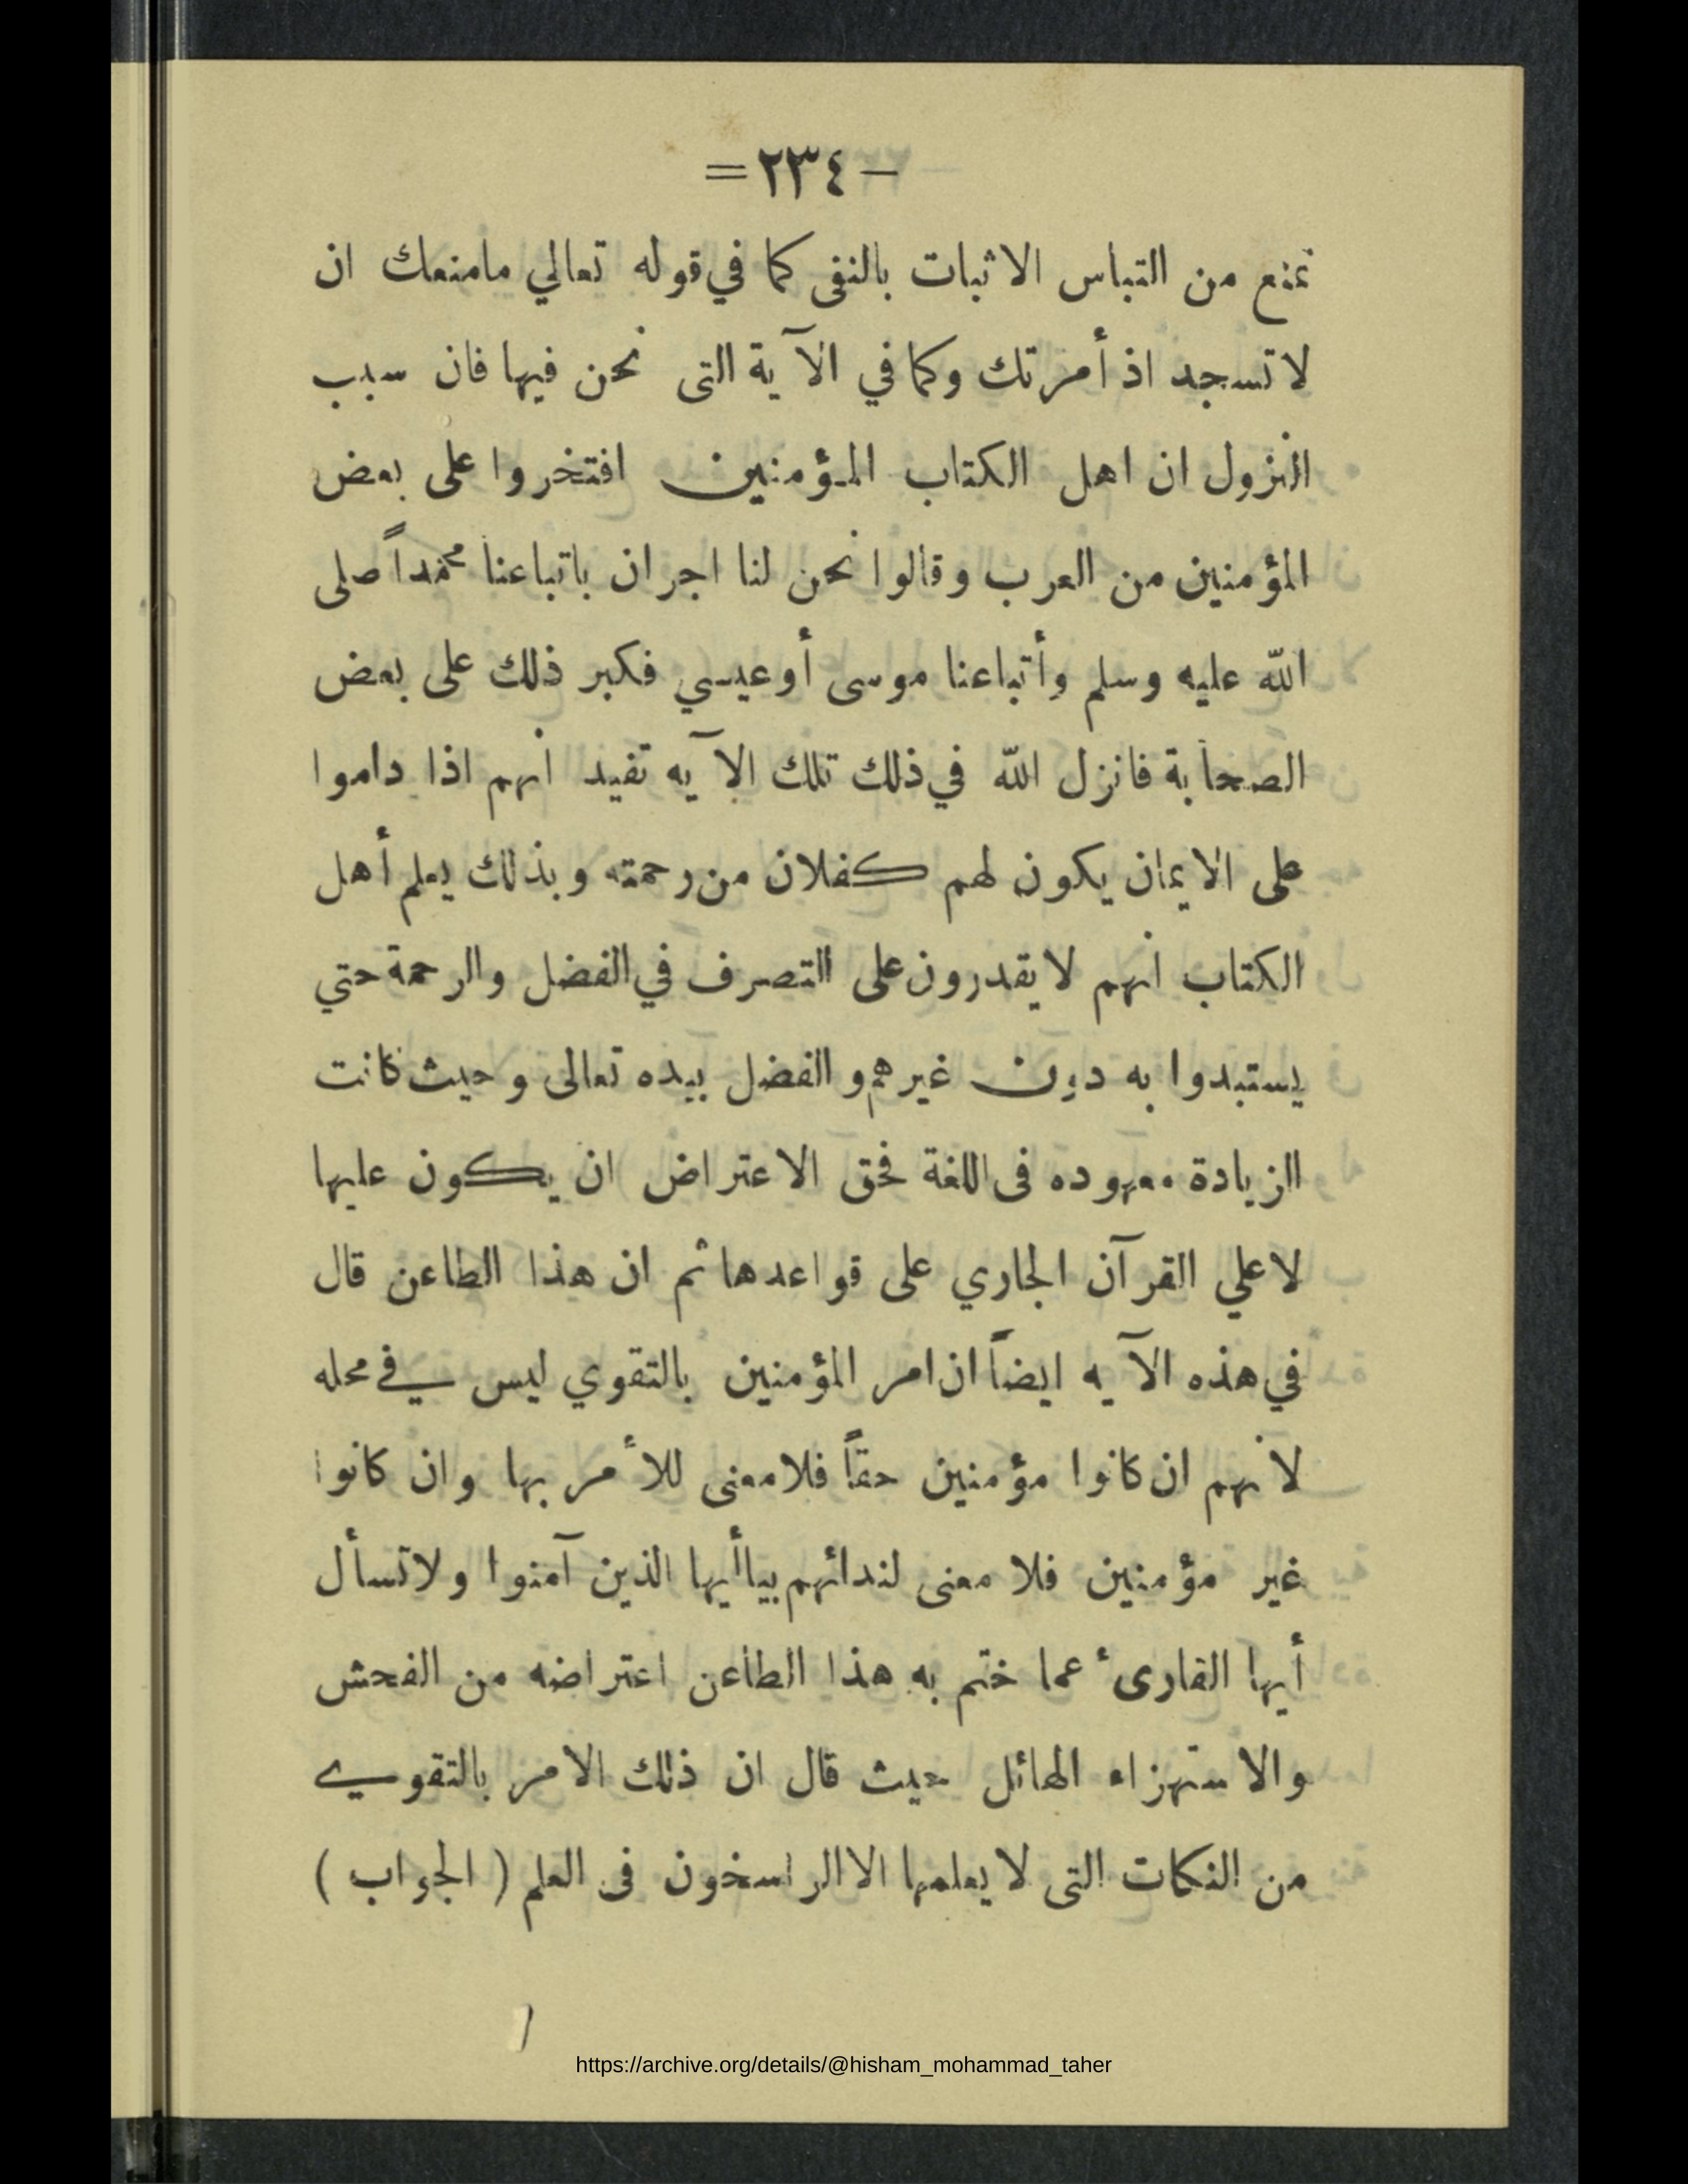 — ٢٣٤ =
تمنع من التباس الاثبات بالنفى كما في قوله تعالي مامنعك ان
لا تسجد اذ أمرتك وكما في الآية التى نحن فيها فان سبب
النزول ان اهل الكتاب المؤمنين افتخروا على بعض
المؤمنين من العرب وقالوا نحن لنا اجران باتباعنا محمداً صلى
الله عليه وسلم وأتباعنا موسى أو عيسي فكبر ذلك على بعض
الصحابة فانزل الله في ذلك تلك الآيه تفيد انهم اذا داموا
على الايمان يكون لهم كفلان من رحمته وبذلك يعلم أهل
الكتاب انهم لا يقدرون على التصرف في الفضل والرحمة حتي
يستبدوا به دون غيرهم والفضل بيده تعالى وحيث كانت
الزيادة معهوده فى اللغة فحق الاعتراض ان يكون عليها
لا علي القرآن الجاري على قواعدها ثم ان هذا الطاعن قال
في هذه الآيه ايضاً ان امر المؤمنين بالتقوي ليس في محله
لانهم ان كانوا مؤمنين حقاً فلا معنى للأمر بها وان كانوا
غير مؤمنين فلا معنى لندائهم بياأيها الذين آمنوا ولا تسأل
أيها القارىء عما ختم به هذا الطاعن اعتراضه من الفحش
والاستهزاء الهائل حيث قال ان ذلك الامر بالتقوي
من النكات التى لا يعلمها الا الراسخون فى العلم ( الجواب )
https://archive.org/details/@hisham_mohammad_taher